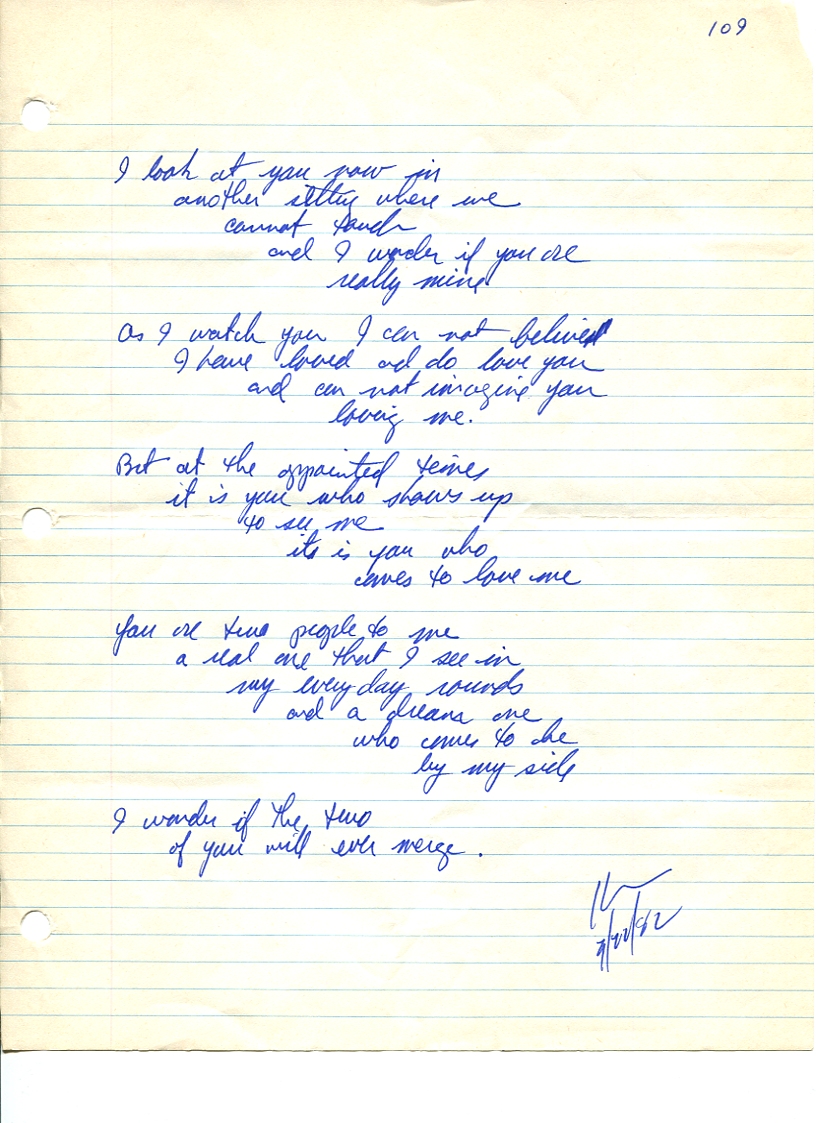 109
I look at you now in
another setting where we
cannot touch
and I wonder if you are
really mine
As I watch you I can not believe
I have loved and do love you
and can not imagine you
loving me.
But at the appointed times
it is you who shows up
to see me
its is you who
comes to love me
You are two people to me
a real one that I see in
my everyday rounds
and a dream one
who comes to be
by my side
I wonder if the two
of you will ever merge.